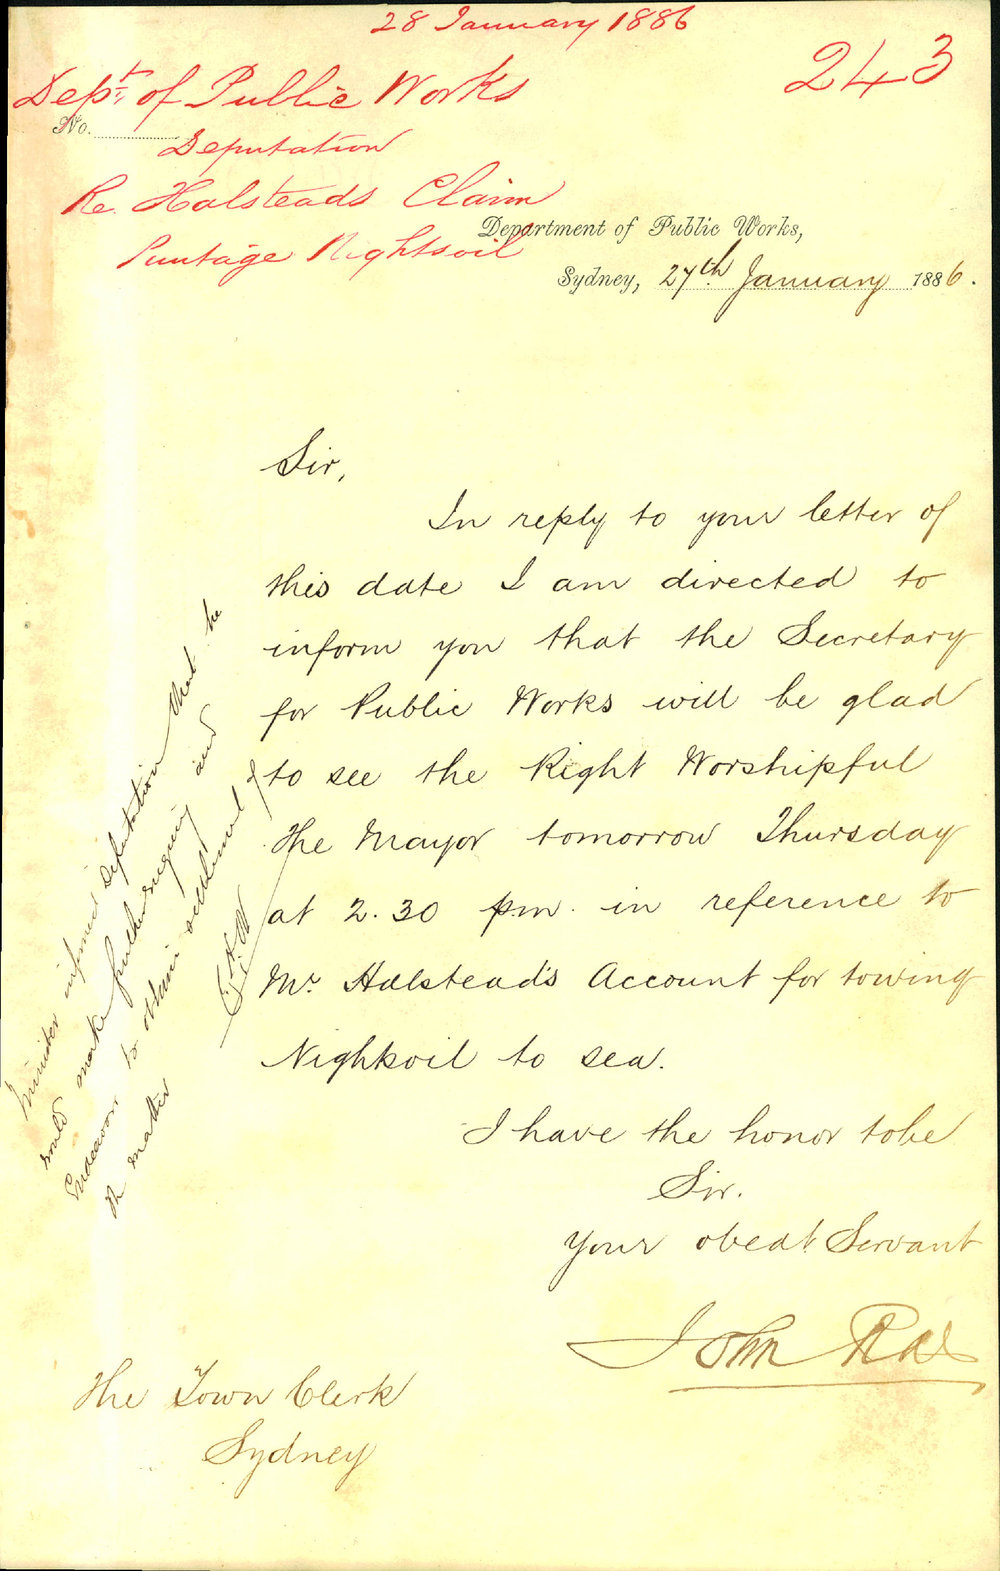 28 January 1886
243
Dept. of Public Works
No.
Deputation
Re Halsteads Claim
Puntage Nightsoil
Department of Public Works,
Sydney, 27th January 1886.
Sir,
In reply to your letter of
this date I am directed to
inform you that the Secretary
for Public Works will be glad
to see the Right Worshipful
the Mayor tomorrow Thursday
at 2.30 pm. in reference to
Mr. Halstead's Account for towing
Nightsoil to sea.
I have the honor to be
Sir.
Your obedt. Servant
John Rae
The Town Clerk
Sydney
Minister informed Deputation that he
would make further enquiry and
Endeavour to obtain settlement of
the matter